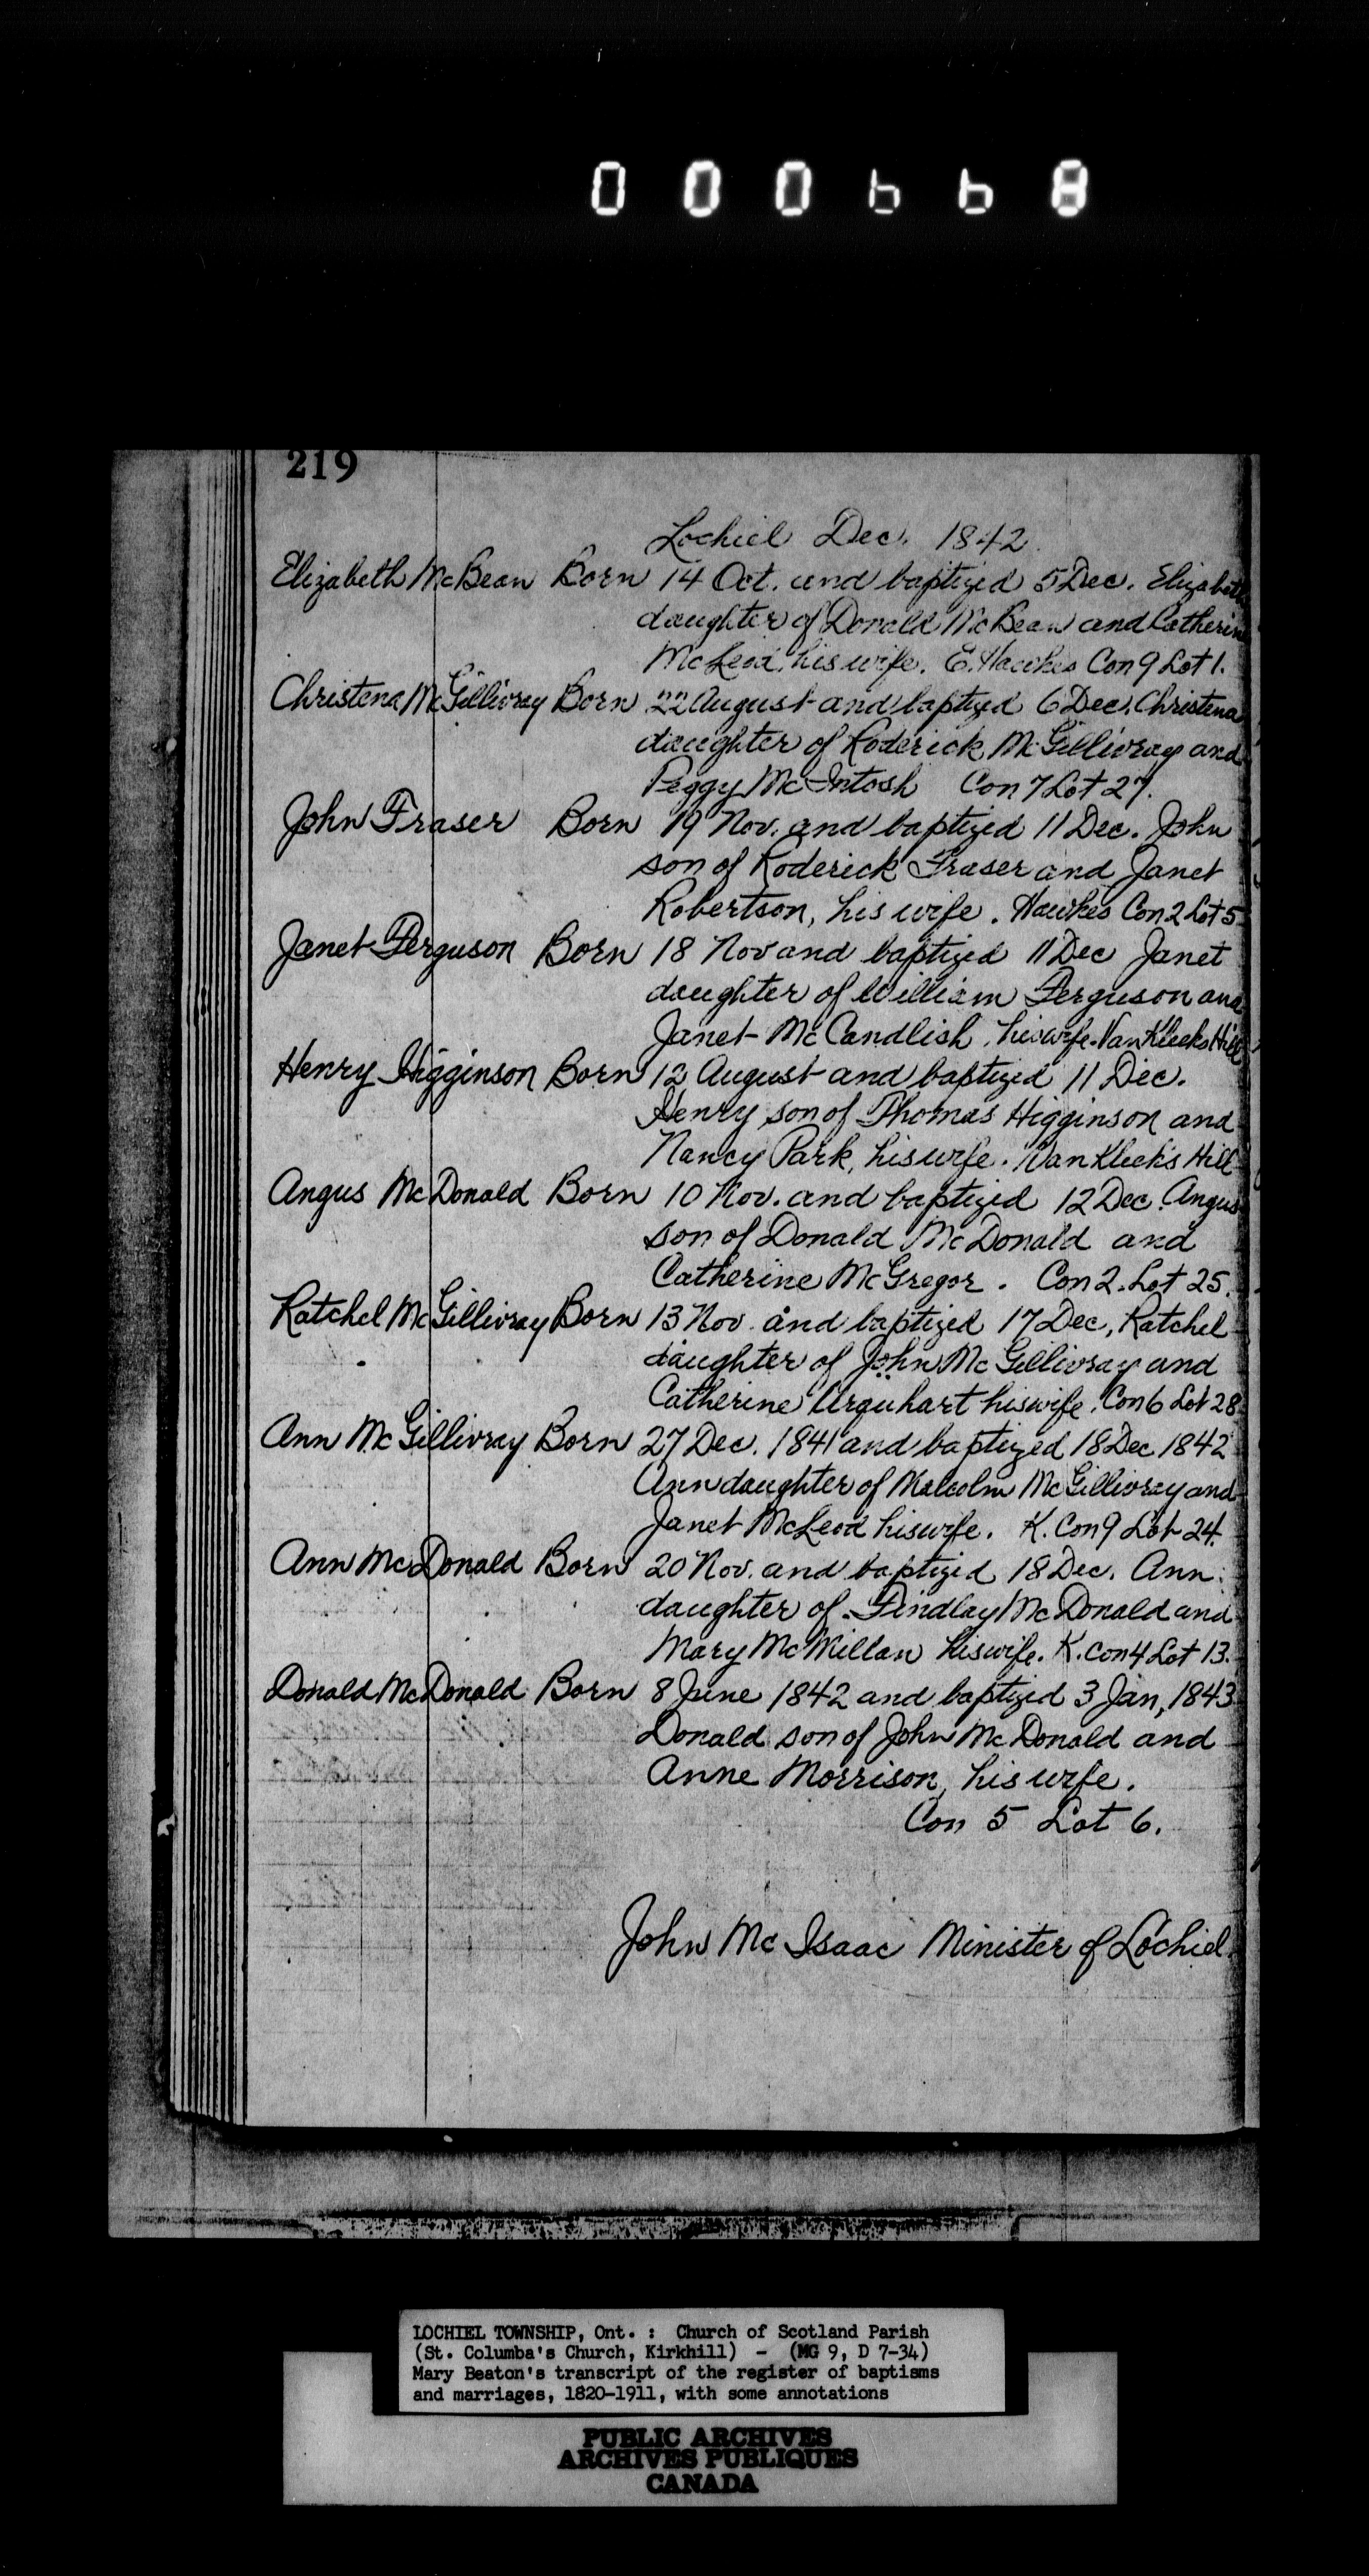 000668
219
Lochiel Dec. 1842
Elizabeth McBean Born 14 Oct. and baptized 5 Dec. Elizabeth
daughter of Donald McBean and Catherine
McLeod, his wife. E. Hawkes Con 9 Lot 1.
Christena McGillivray Born 22 August and baptized 6 Dec. Christena
daughter of Roderick McGillivray and
Peggy McIntosh Con 7 Lot 27.
John Fraser Born 19 Nov. and baptized 11 Dec. John
son of Roderick Fraser and Janet
Robertson, his wife. Hawkes Con 2 Lot 5
Janet Ferguson Born 18 Nov and baptized 11 Dec Janet
daughter of William Ferguson and
Janet McCandlish, his wife. Van Kleeks Hill
Henry Higginson Born 12 August and baptized 11 Dec.
Henry son of Thomas Higginson and
Nancy Park, his wife. Van Kleek's Hill
Angus McDonald Born 10 Nov. and baptized 12 Dec. Angus
son of Donald McDonald and
Catherine McGregor. Con 2. Lot 25.
Ratchel McGillivray Born 13 Nov. and baptized 17 Dec, Ratchel
daughter of John McGillivray and
Catherine Urquhart his wife. Con 6 Lot 28
Ann McGillivray Born 27 Dec. 1841 and baptized 18 Dec 1842
Ann daughter of Malcolm McGillivray and
Janet McLeod his wife. K. Con 9 Lot 24.
Ann McDonald Born 20 Nov. and baptized 18 Dec. Ann
daughter of Findlay McDonald and
Mary McMillan his wife. K. Con 4 Lot 13.
Donald McDonald Born 8 June 1842 and baptized 3 Jan, 1843
Donald son of John McDonald and
Anne Morrison, his wife.
Con 5 Lot 6.
John McIsaac Minister of Lochiel.
LOCHIEL TOWNSHIP, Ont. : Church of Scotland Parish
(St. Columba's Church, Kirkhill) - (MG 9, D 7-34)
Mary Beaton's transcript of the register of baptisms
and marriages, 1820-1911, with some annotations
PUBLIC ARCHIVES
ARCHIVES PUBLIQUES
CANADA